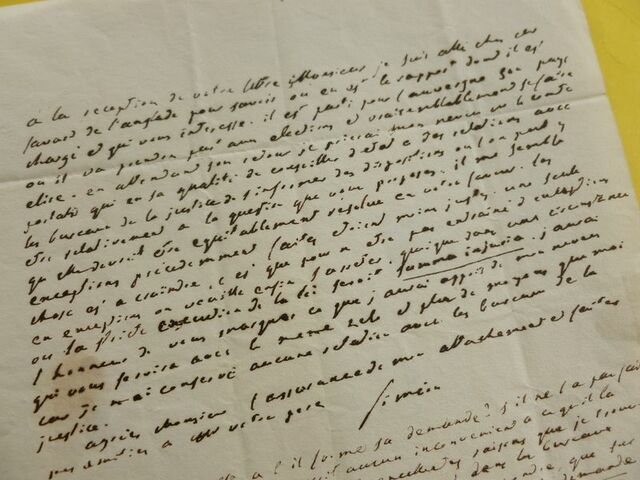 à la reception de votre lettre Monsieur je suis allé chez
favard de l'anglade pour savoir où en est le rapport dont il est
chargé et qui vous interesse. il est parti pour l'auvergne son pays
où il va prendre part aux elections et vraisemblablement se faire
elire. en attendant son retour je prierai mon neveu le comte
qui en sa qualité de conseiller d'etat a des relations avec
les bureaux de la justice de s'informer des dispositions où l'on peut y
etre relativement à la question que vous proposez. il me semble
qu'elle devroit etre equitablement resolue en votre faveur. les
exceptions précédemment faites etoient moins justes. une seule
chose est à craindre, c'est que pour n'etre pas entrainé d'exceptions
en exceptions on veuille enfin s'arreter, quoique dans vous
où la stricte execution de la loi seroit summa injuria. j'aurai
l'honneur de vous marquer ce que j'aurai appris de mon neveu
qui vous servira avec le meme zele et plus de moyens que moi
car je n'ai conservé aucune relation avec les bureaux de la
justice.
agréez Monsieur l'assurance de mon attachement et faites
mes amitiés à votre pere
Siméon
il forme sa demande? s'il ne l'a pas fait
aucun inconvenient à ce qu'il la
raisons que je trouve
dans les bureaux
que
demande